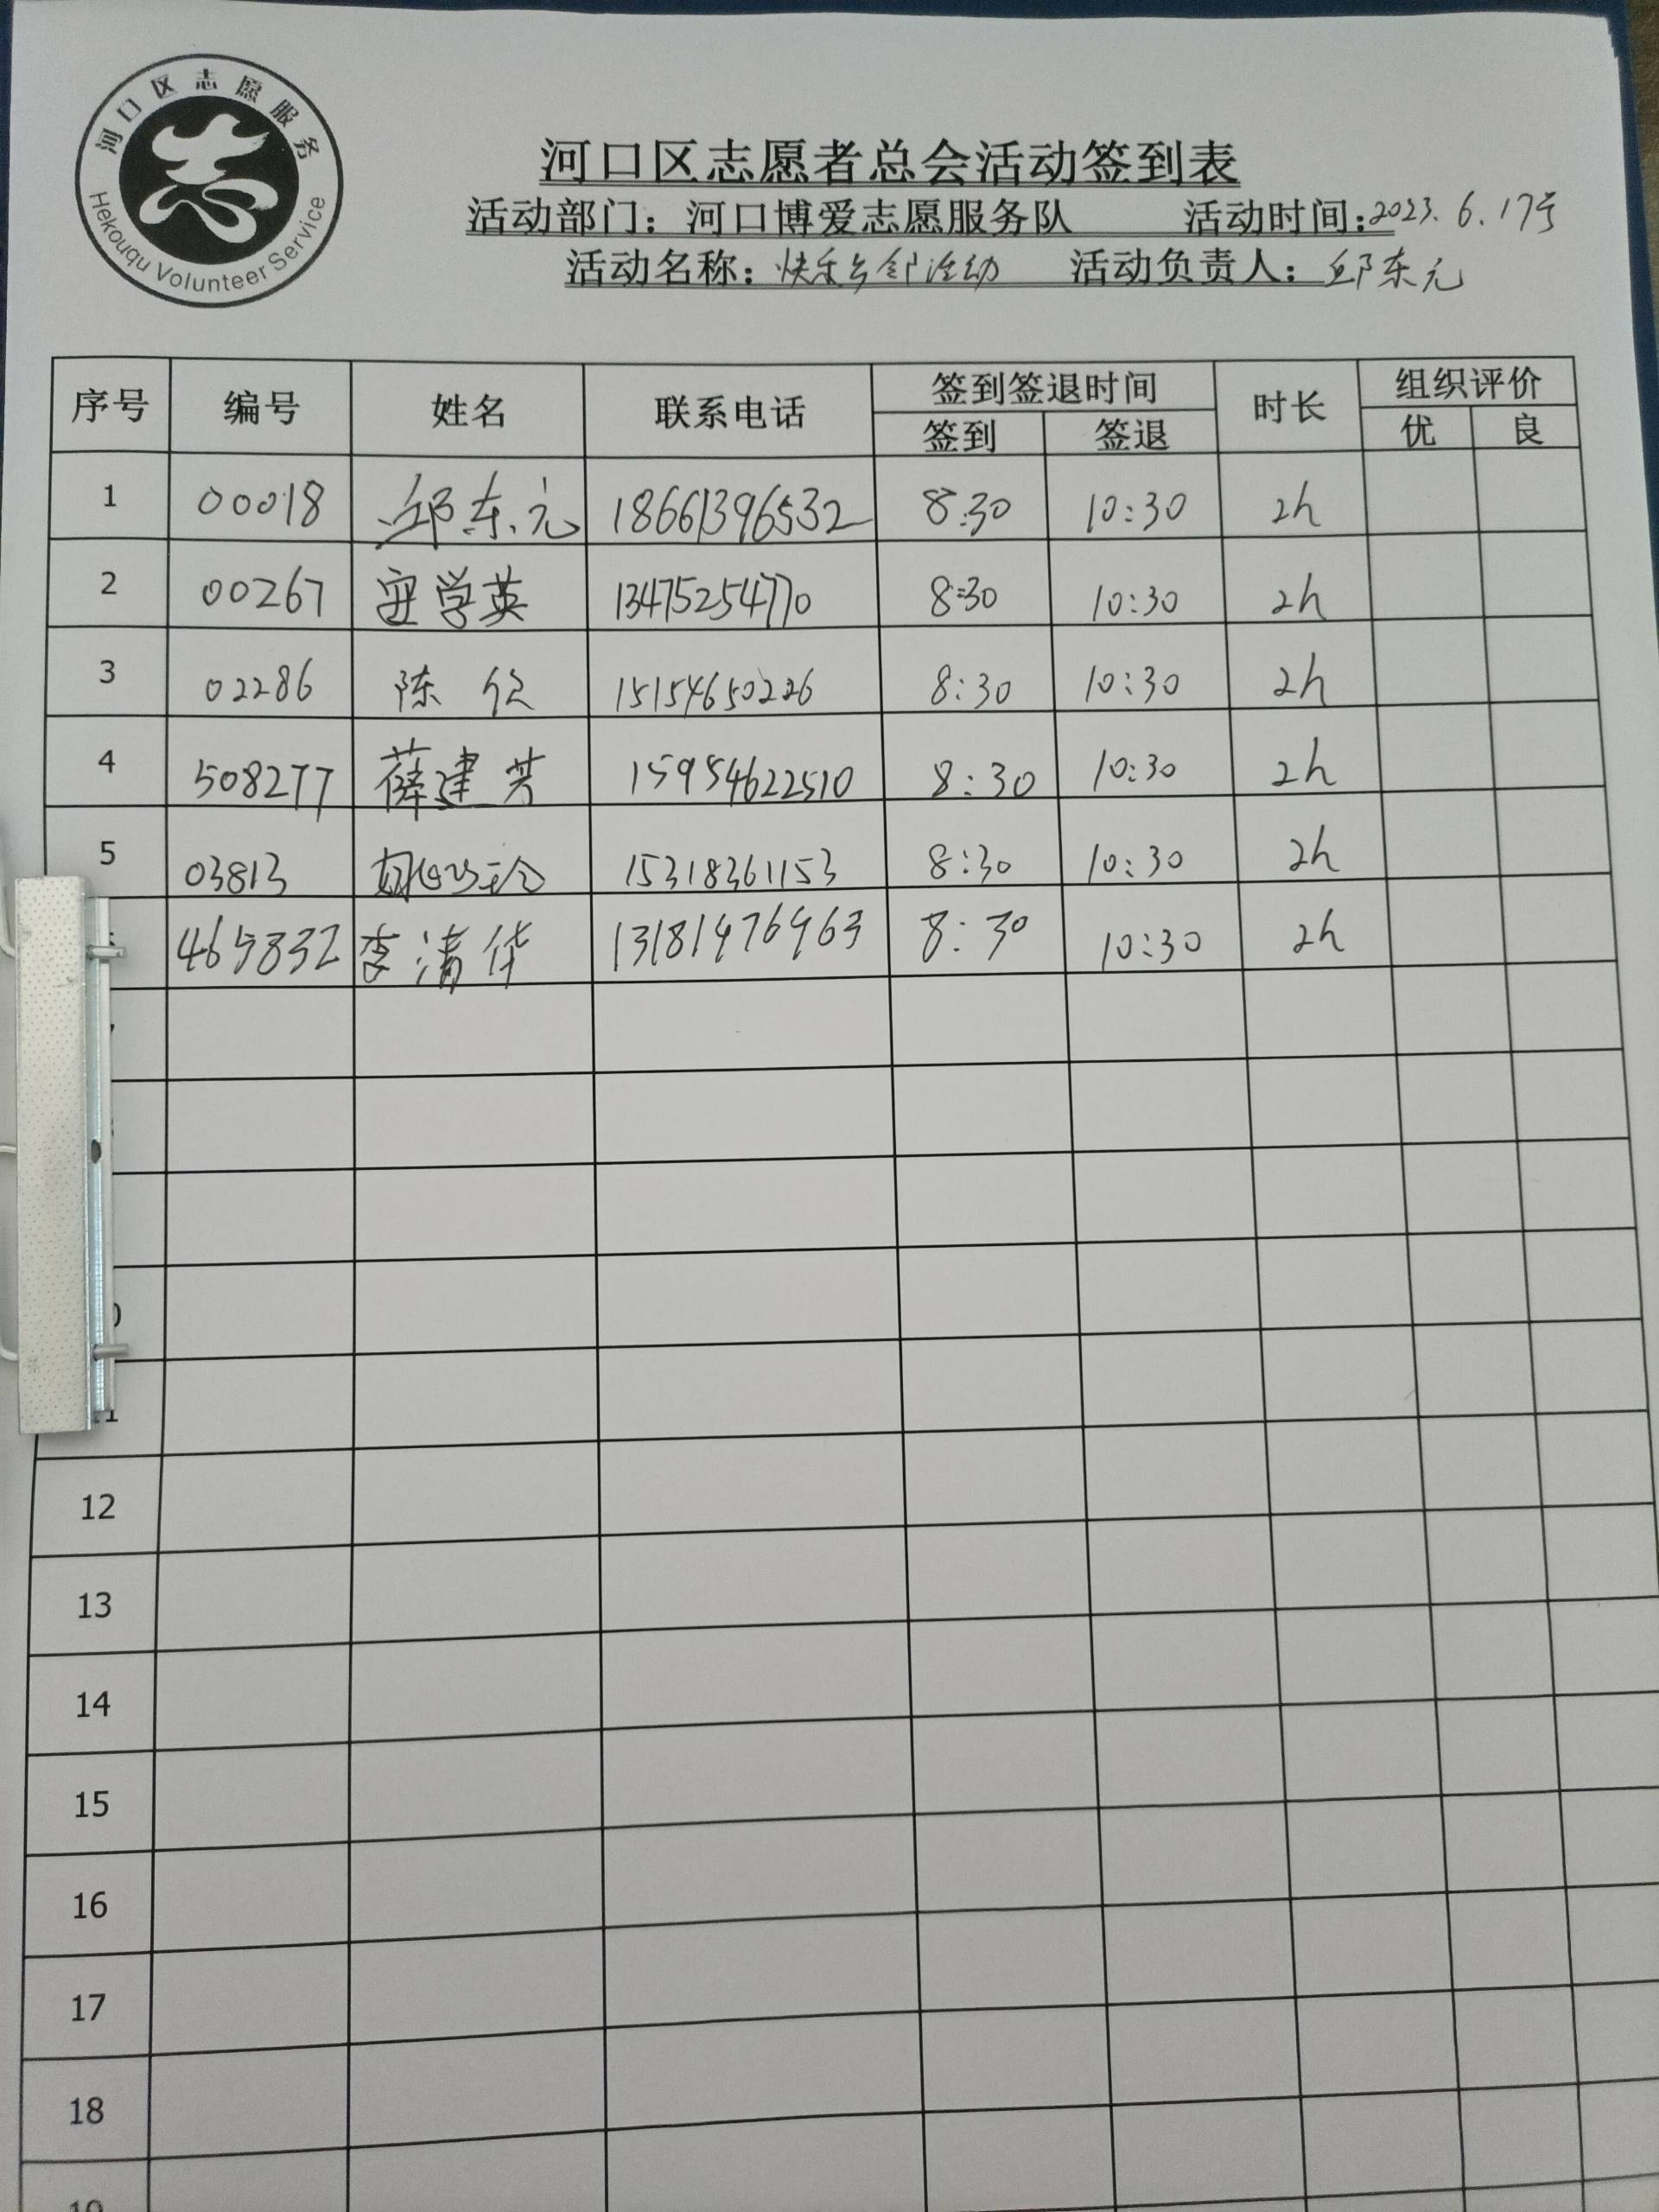 河口区志愿服务
Hekouqu Volunteer Service
河口区志愿者总会活动签到表
活动部门：河口博爱志愿服务队 活动时间：2023.6.17号
活动名称：快乐乡邻活动 活动负责人：邱东元
序号 编号 姓名 联系电话 签到签退时间 时长 组织评价
签到 签退 优 良
1 00018 邱东元 18661396532 8:30 10:30 2h
2 00267 学英 13475254770 8:30 10:30 2h
3 02286 陈 15154650226 8:30 10:30 2h
4 508277 薛建芳 15954622510 8:30 10:30 2h
5 03813 15318361153 8:30 10:30 2h
465832 李清华 13181976963 8:30 10:30 2h
12
13
14
15
16
17
18
19